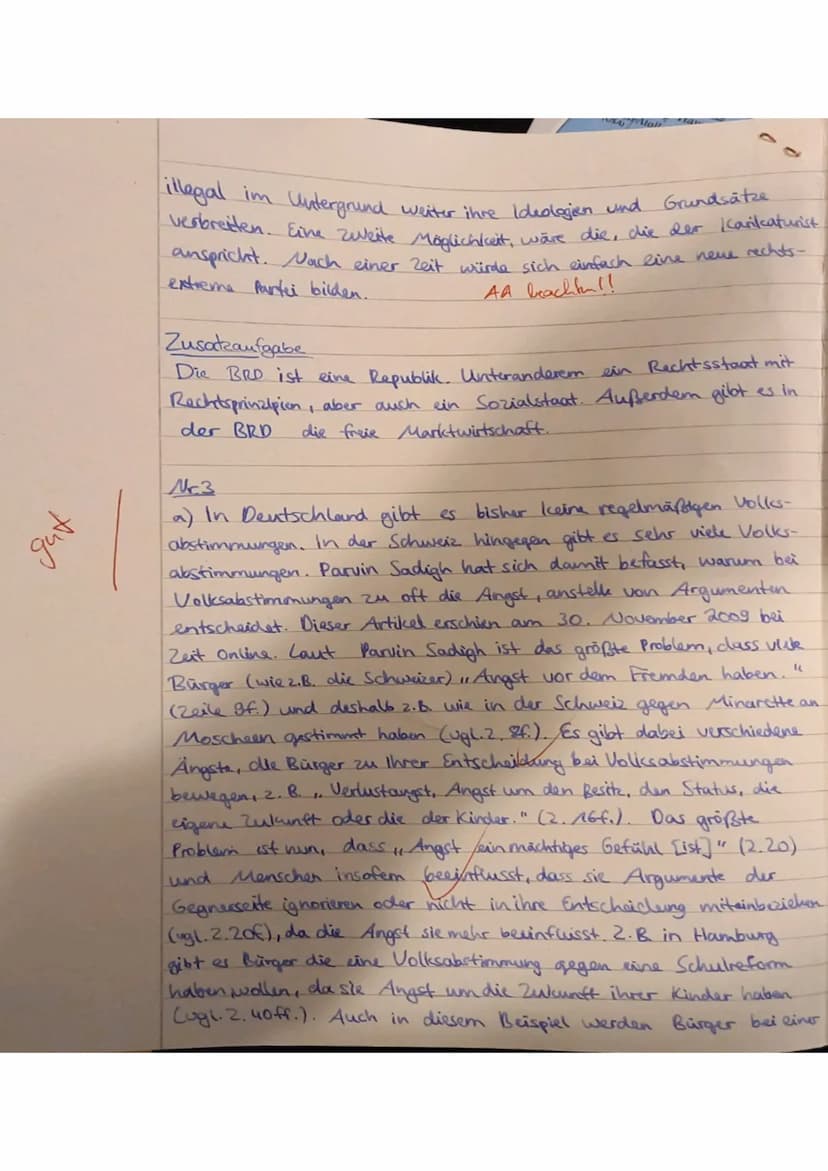 illegal im Untergrund weiter ihre Ideologien und Grundsätze
verbreiten. Eine zweite Möglichkeit, wäre die, die der Karikaturist
anspricht. Nach einer Zeit würde sich einfach eine neue rechts-
extreme Partei bilden.
AA beachten!!
Zusatzaufgabe
Die BRD ist eine Republik. Unteranderem ein Rechtsstaat mit
Rechtsprinzipien, aber auch ein Sozialstaat. Außerdem gibt es in
der BRD die freie Marktwirtschaft.
Nr.3
gut
a) In Deutschland gibt es bisher keine regelmäßigen Volks-
abstimmungen. In der Schweiz hingegen gibt es sehr viele Volks-
abstimmungen. Parvin Sadigh hat sich damit befasst, warum bei
Volksabstimmungen zu oft die Angst, anstelle von Argumenten
entscheidet. Dieser Artikel erschien am 30. November 2009 bei
Zeit Online. Laut Parvin Sadigh ist das größte Problem, dass viele
Bürger (wie z.B. die Schweizer) „Angst vor dem Fremden haben."
(Zeile 9f.) und deshalb z.B. wie in der Schweiz gegen Minarette an
Moscheen gestimmt haben (vgl. Z. 8f.). Es gibt dabei verschiedene
Ängste, die Bürger zu Ihrer Entscheidung bei Volksabstimmungen
bewegen, z.B. „Verlustangst, Angst um den Besitz, den Status, die
eigene Zukunft oder die der Kinder." (Z. 16f.). Das größte
Problem ist nun, dass „Angst ein mächtiges Gefühl [ist]" (Z.20)
und Menschen insofern beeinflusst, dass sie Argumente der
Gegnerseite ignorieren oder nicht in ihre Entscheidung miteinbeziehen
(vgl. Z. 20f.), da die Angst sie mehr beeinflusst. Z.B. in Hamburg
gibt es Bürger die eine Volksabstimmung gegen eine Schulreform
haben wollen, da sie Angst um die Zukunft ihrer Kinder haben
(vgl. Z. 40ff.). Auch in diesem Beispiel werden Bürger bei einer